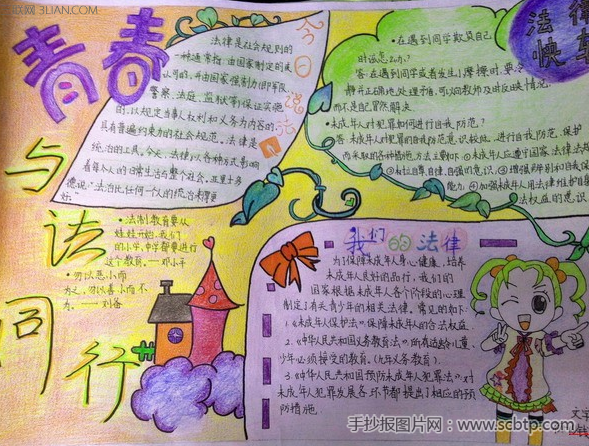 JLIAN.COM
青春
与
法
同
行
今日说法
法律是社会规则的
一种通常指:由国家制定的或
认可的,并由国家强制力(即军队,
警察、法庭、监狱等)保证实施
的,以规定当事人权利和义务为内容的,
具有普遍约束力的社会规范。法律是
统治的工具。今天,法律以各种方式影响
着每个人的日常生活与整个社会。亚里士多
德说:"法治比任何一个人的统治来得更
好。"
•法制教育要从
娃娃开始,我们
的小学,中学都要进行
这个教育。——邓小平
•勿以恶小而
为之,勿以善小而不
为。——刘备
法律
快车
•在遇到同学欺负自己
时该怎么办?
答:在遇到同学或者发生小摩擦时,要冷
静并正确地处理矛盾,可以向教师及时反映情况,
而不是自己冒然解决
•未成年人对犯罪如何进行自我防范?
答:未成年人对犯罪的自我防范意识较低,进行自我防范、保护
而采取的各种措施,方法主要如下:①未成年人应遵守国家法律法规
②树立自尊自律、自强的意识;③增强辨别和自我保
能力,④加强未成年人用法律维护自身
法权益的意识
我们的法律
为了保障未成年人身心健康、培养
未成年人良好的品行,我们的
国家根据未成年人各个阶段的心理
制定了有关青少年的相关法律。常见的如下:
1.《未成年人保护法》保障未成年人的合法权益。
2.《中华人民共和国义务教育法》,所有适龄儿童
少年必须接受的教育。(九年义务教育)。
3.《中华人民共和国预防未成年人犯罪法》对
未成年人犯罪发展各环节都提出了相应的预
防措施。
文字
手抄报图片网·www.scbtp.com